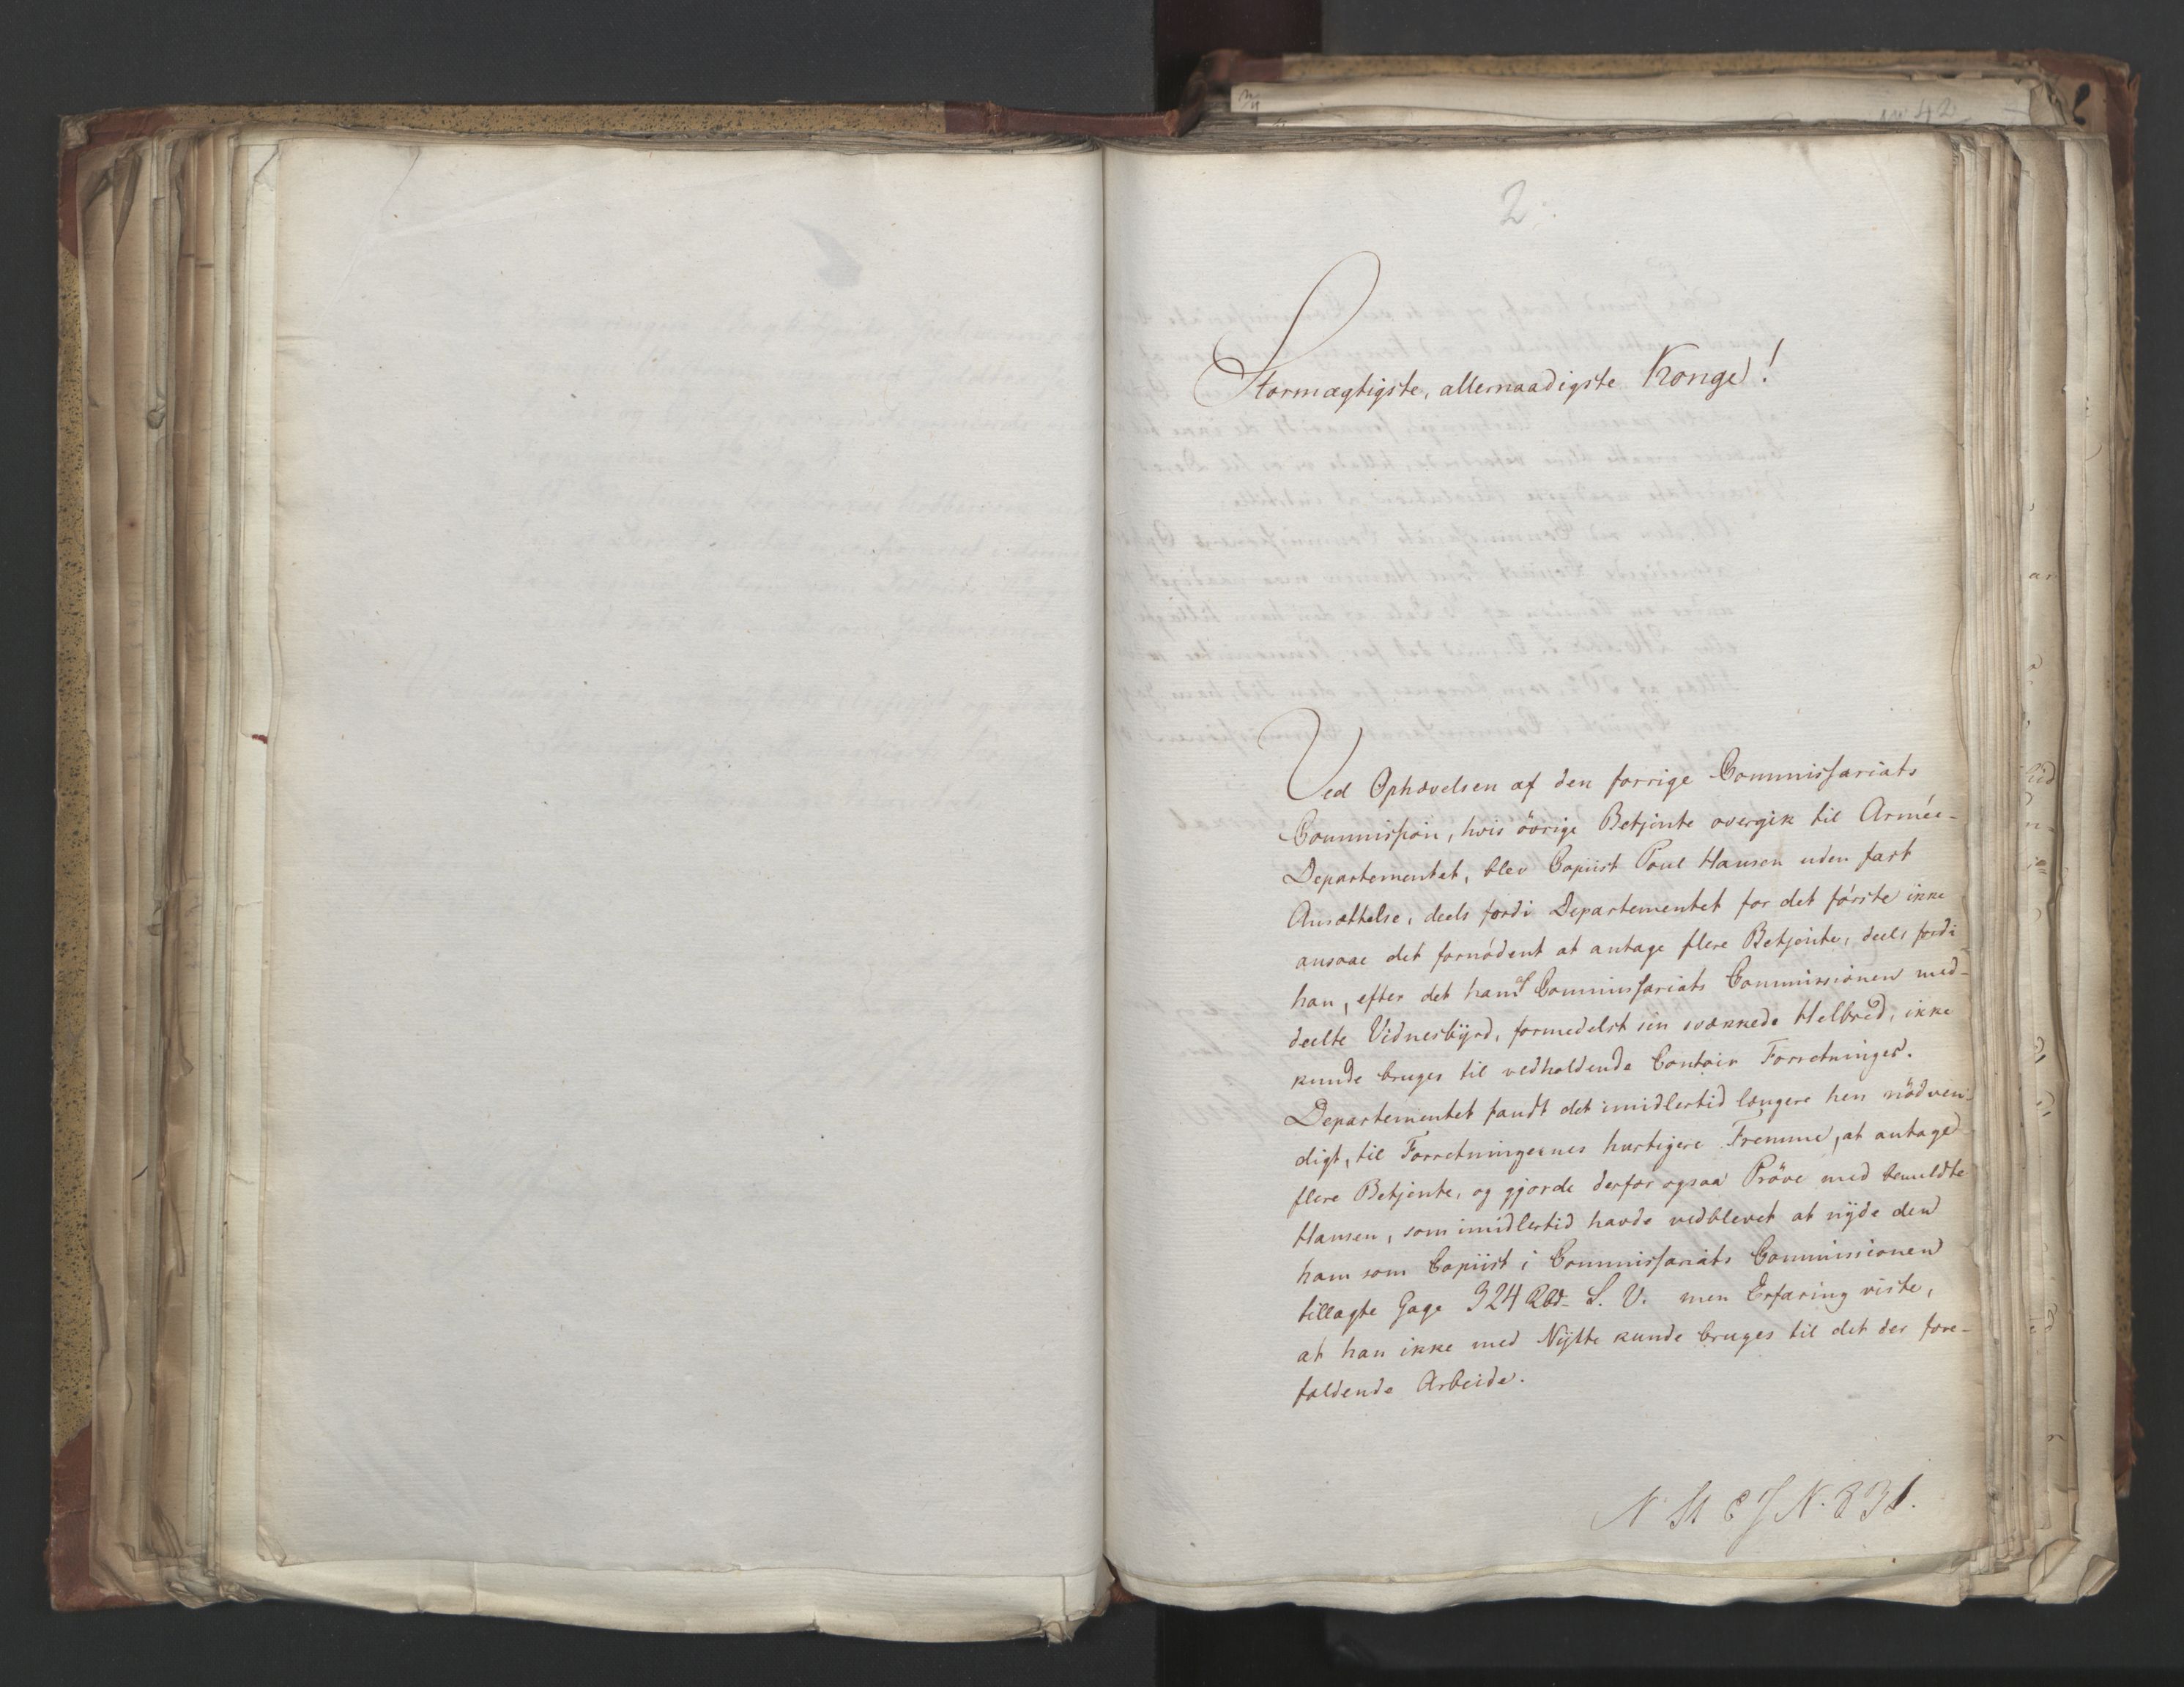 No 42
2.
Stormægtigste, allernaadigste Konge!
Ved Ophævelsen af den forrige Commissariats
Commission, hvis övrige Betjente overgik til Armée-
Departementet, blev Copiist Poul Hansen uden fast
Ansættelse, deels fordi Departementet for det förste ikke
ansaae det fornödent at antage flere Betjente, deels fordi
han, efter det ham af Commissariats Commissionen med-
deelte Vidnesbyrd, formedelst sin svækkede Helbred, ikke
kunde bruges til vedholdende Contoir Forretninger.
Departementet fandt det imidlertid længere hen nödven-
digt, til Forretningernes hurtigere Fremme, at antage
flere Betjente, og gjorde derfor ogsaa Pröve med bemeldte
Hansen, som imidlertid havde vedblevet at nyde den
ham som Copiist i Commissariats Commissionen
tillagte Gage 324 Rbd. S. V. men Erfaring viste,
at han ikke med Nytte kunde bruges til det der fore-
faldende Arbeide.
N St E J N. 831.